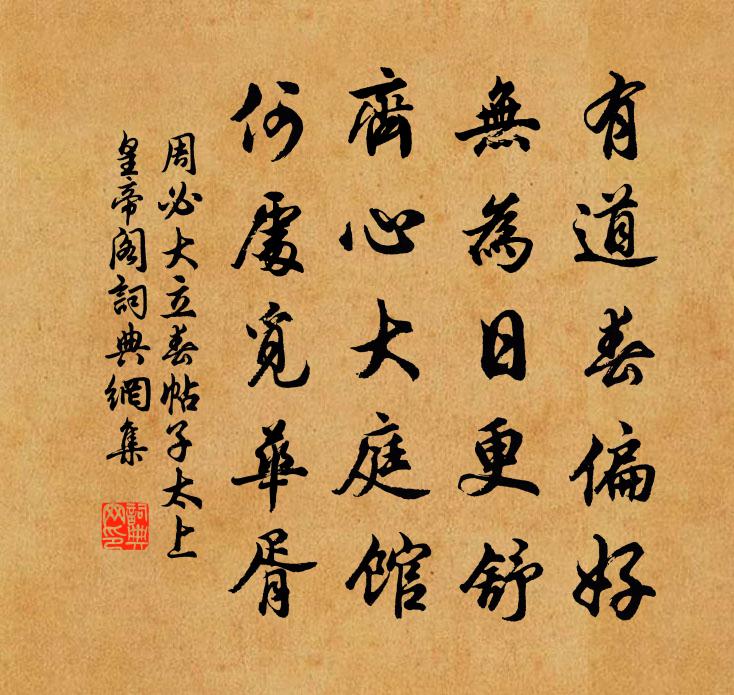 有道春偏好
無為日更舒
齋心大庭館
何處覓華胥
周必大立春帖子太上
皇帝閣詞典網集
詞典網印